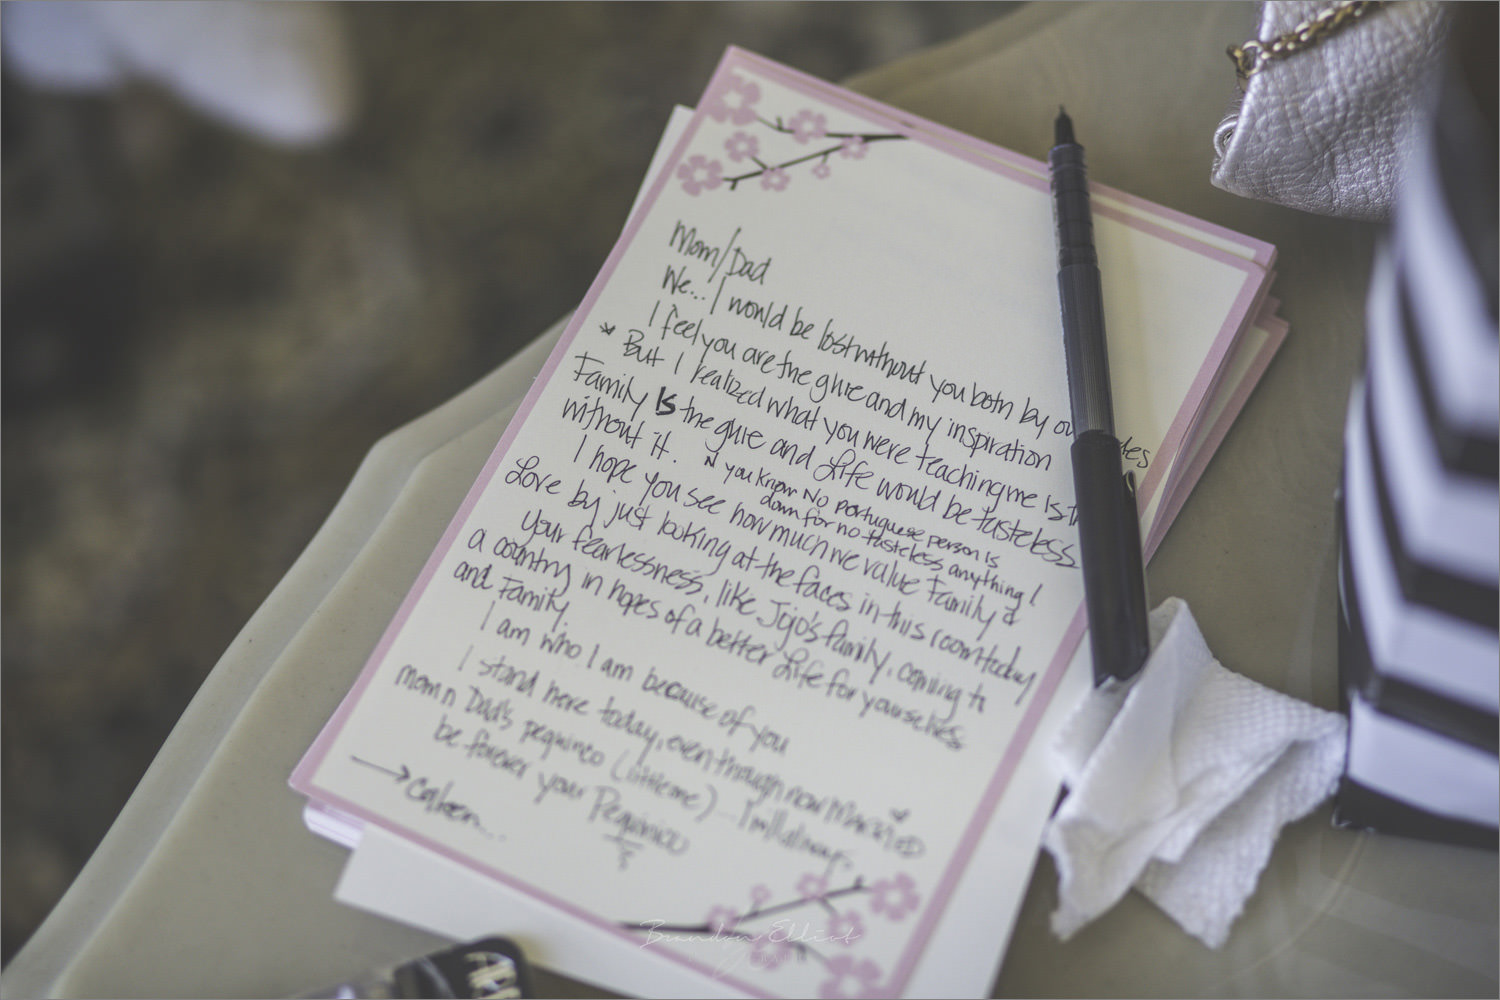 Mom/Dad
We... I would be lost without you both by our sides
I feel you are the glue and my inspiration
* But I realized what you were teaching me is th
Family IS the glue and Life would be tasteless
without it. N you know No portuguese person is
down for no tasteless anything!
I hope you see how much we value Family &
Love by just looking at the faces in this room today
Your fearlessness, like Jojo's family, coming to
a country in hopes of a better Life for yourselves
and Family.
I am who I am because of you
I stand here today, even though now MARRIED
mom n Dad's pequinco (little me) - I will always
be forever your Pequinico
→
Brandon Elliot